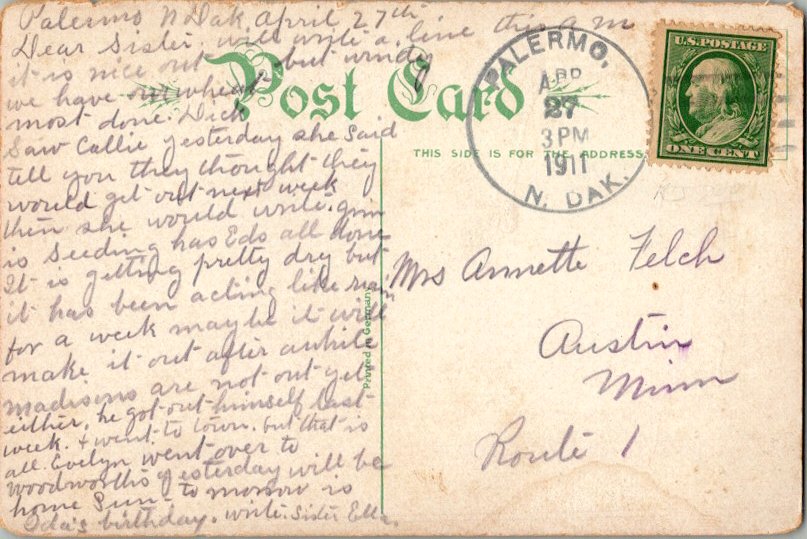 Palermo N Dak April 27th
Dear Sister will write a line this a m
it is nice out but windy
we have our wheat
most done. Dick
Saw Callie yesterday she said
tell you they thought they
would get out next week
then she would write.
is seeding has Eds all done
It is getting pretty dry but
it has been acting like rain
for a week maybe it will
make it out after awhile
madisons are not out yet
either, he got out himself last
week. + went to town. but that is
all. Evelyn went over to
woodworths yesterday will be
home Sun to morrow is
Ida's birthday. write. Sister Ella.
Post Card
THIS SIDE IS FOR THE ADDRESS
Printed in Germany
PALERMO,
APR
27
3 PM
1911
N. DAK.
U.S. POSTAGE
ONE CENT
Mrs Annette Felch
Austin
Minn
Route 1